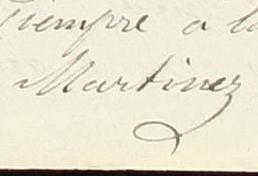 siempre a la
Martinez